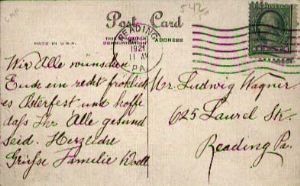 Post Card
MADE IN U.S.A.
ADDRESS
READING
1921
11 AM
PA.
Wir Alle wünschen
Euch ein recht fröhlich
es Osterfest und hoffe
dass Ihr Alle gesund
seid. Herzliche
Grüsse Familie
Mr. Ludwig Wagner
625 Laurel Str.
Reading Pa.